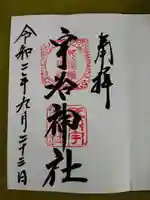 奉拝
宇治神社
令和二年九月二十三日